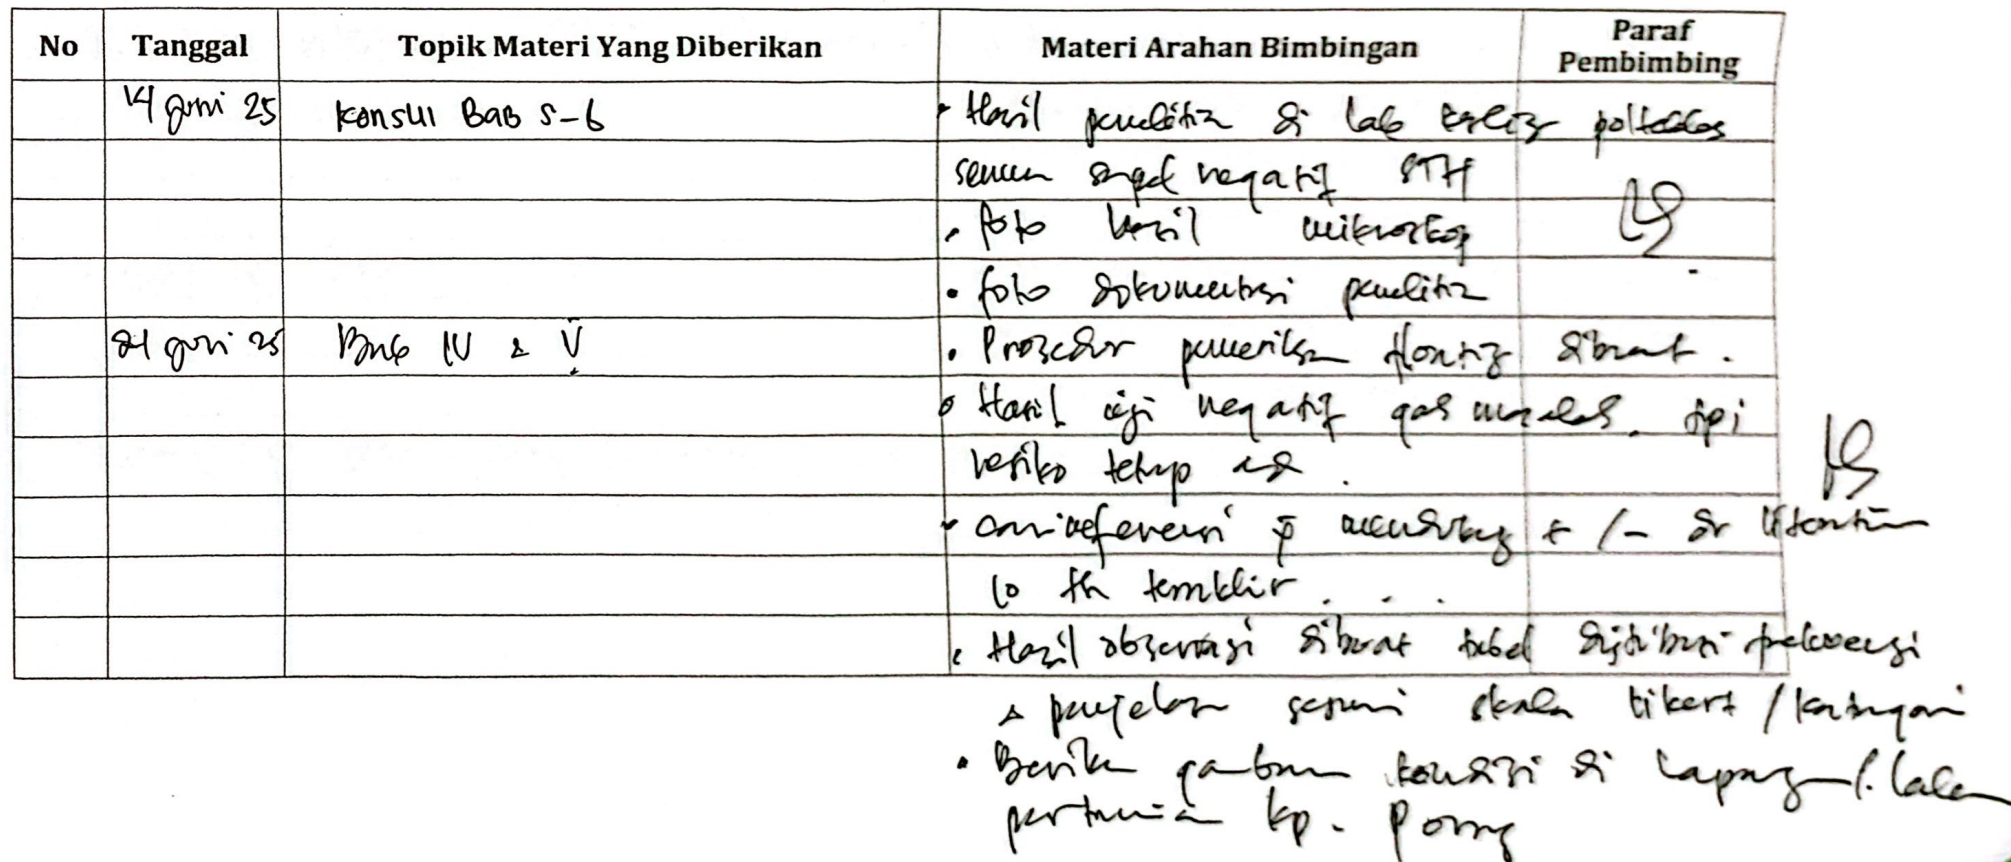 No Tanggal Topik Materi Yang Diberikan Materi Arahan Bimbingan Paraf Pembimbing
14 Juni 25 Konsul Bab 5-6 • Hasil penelitian di lab poltekkes
semua negatif STH
• foto hasil mikroskop
• foto dokumentasi penelitian
21 Juni 25 Bab IV & V • Prosedur pemeriksaan floating dibuat.
• Hasil uji negatif masalah. tpi
resiko tetap ada.
• cari referensi yg mendukung + / - dr literatur
10 th terakhir . . .
• Hasil observasi dibuat tabel distribusi frekuensi
& penjelasan sesuai skala likert / kategori
• Berikan gambaran kondisi di lapangan / lahan
pertanian kp.